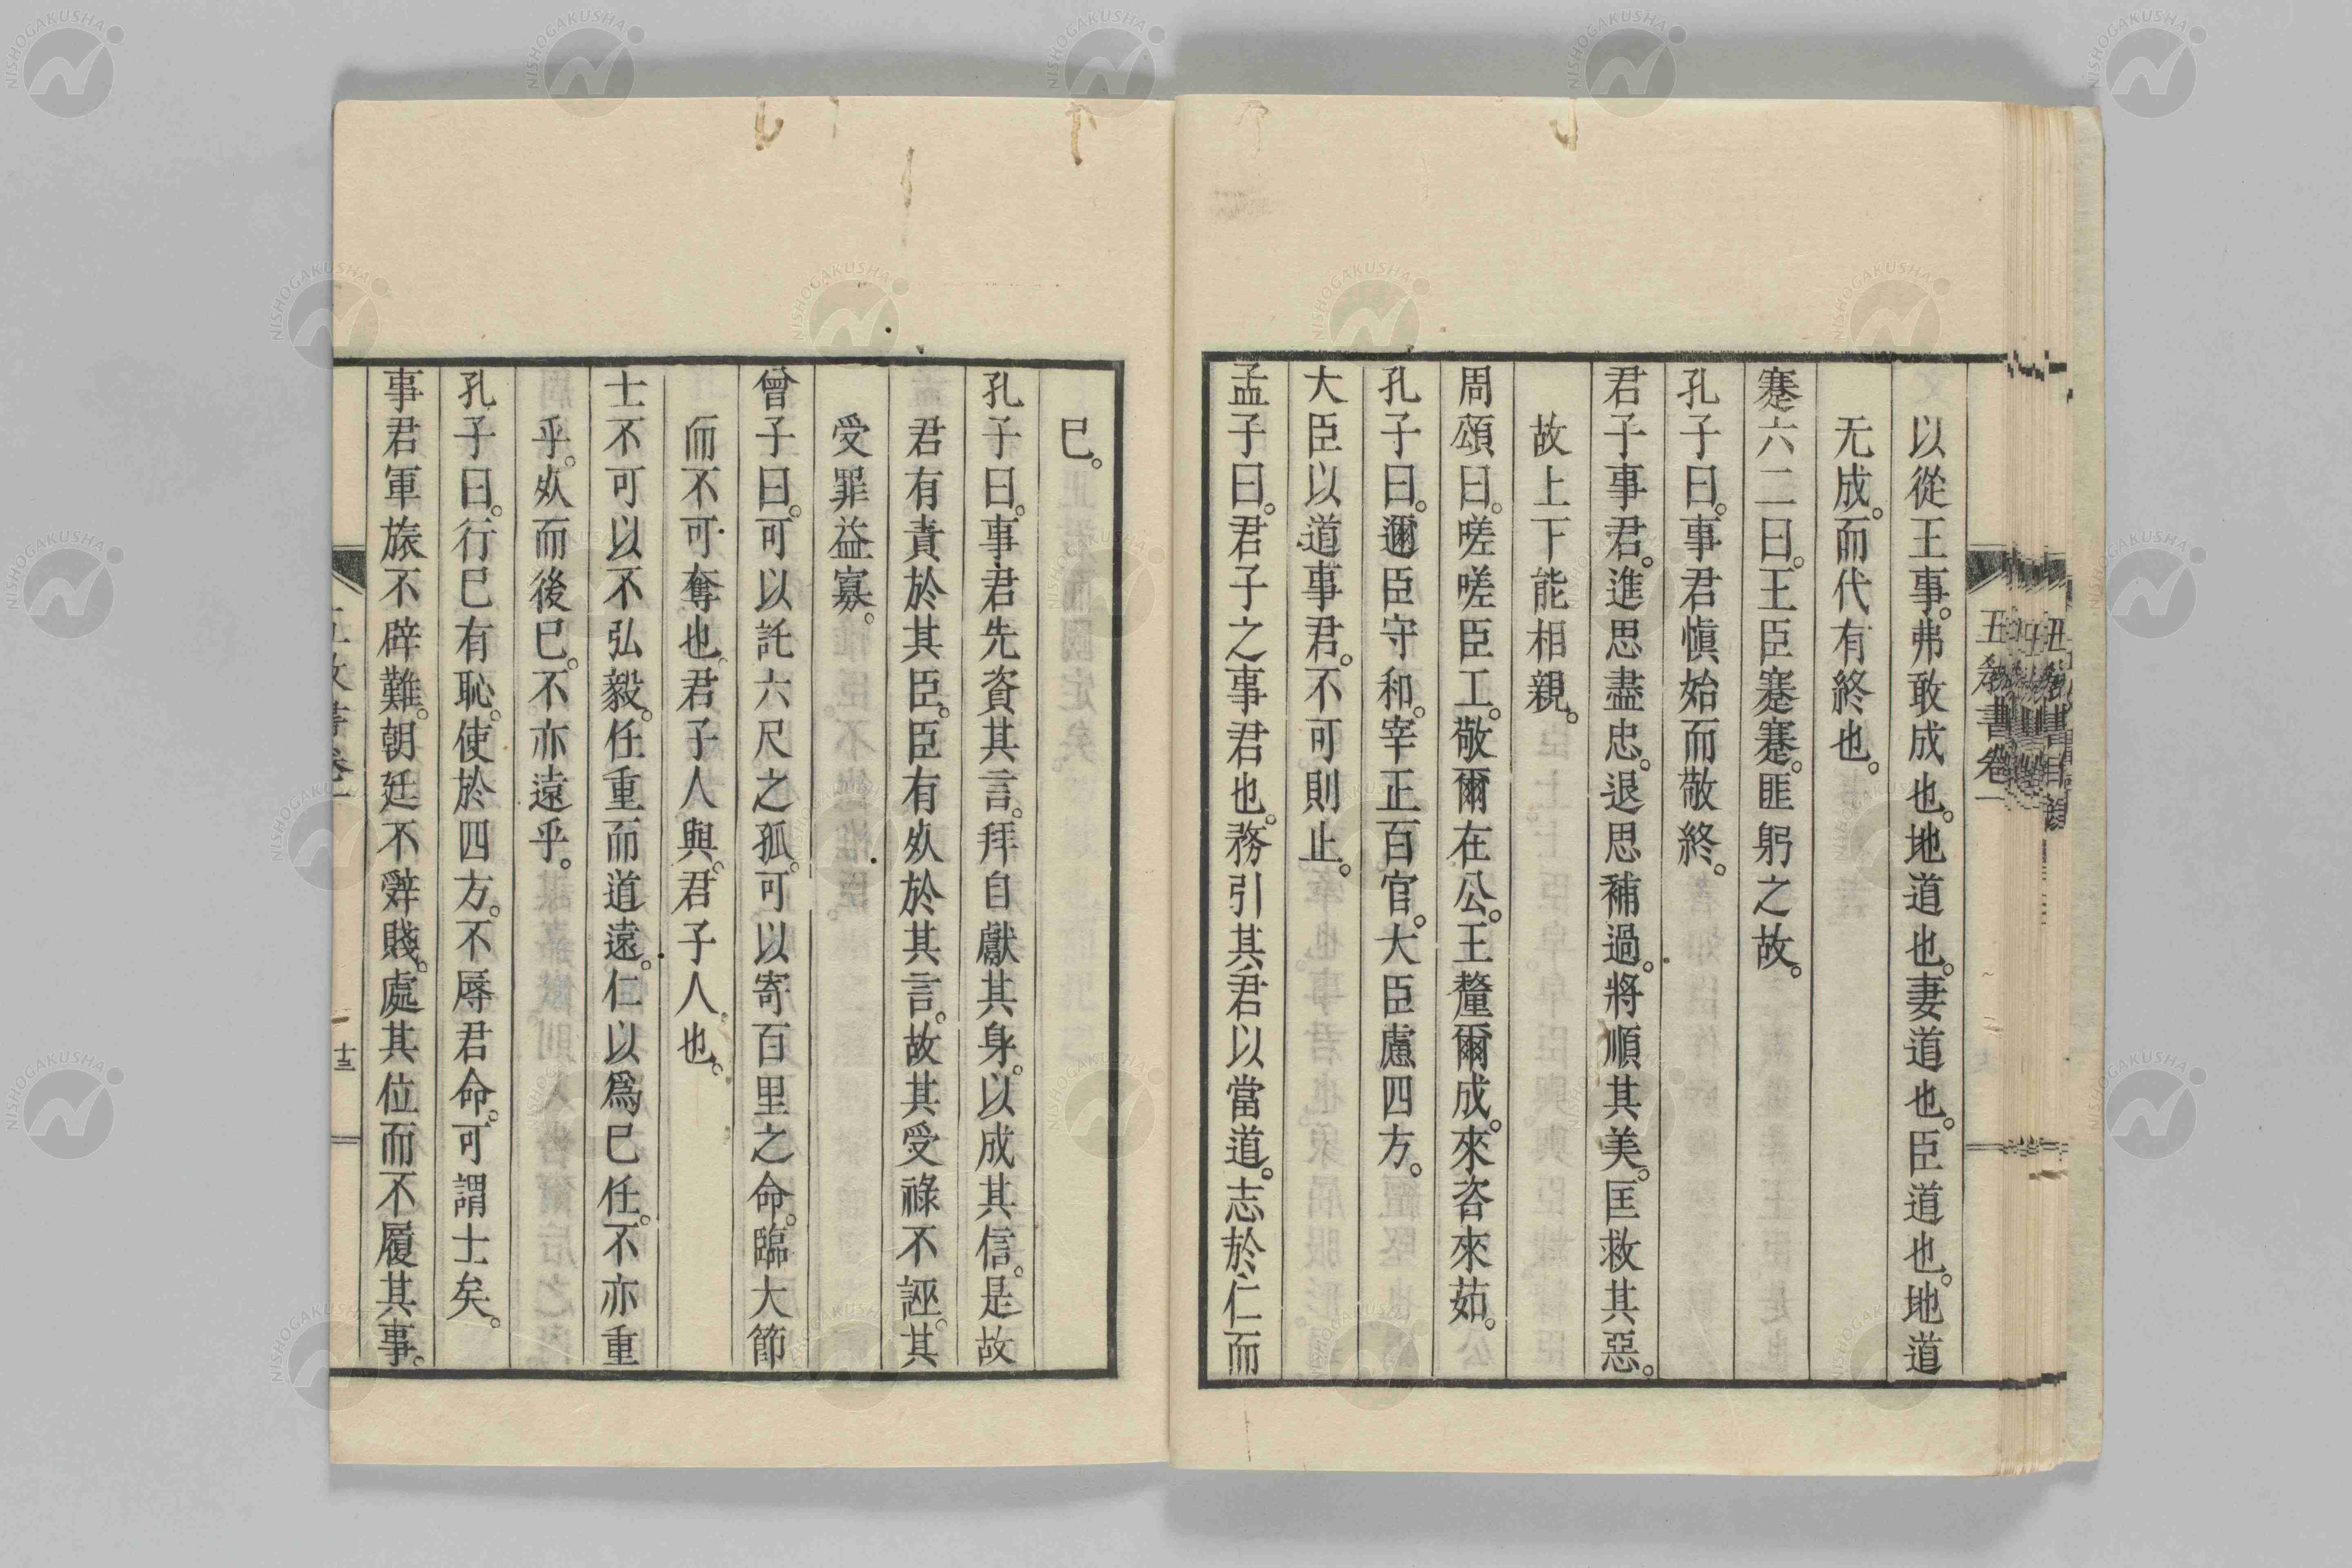 以從王事。弗敢成也。地道也。妻道也。臣道也。地道
无成。而代有終也。
蹇六二曰。王臣蹇蹇。匪躬之故。
孔子曰。事君愼始而敬終。
君子事君。進思盡忠。退思補過。將順其美。匡救其惡。
故上下能相親。
周頌曰。嗟嗟臣工。敬爾在公。王釐爾成。來咨來茹。
孔子曰。邇臣守和。宰正百官。大臣慮四方。
大臣以道事君。不可則止。
孟子曰。君子之事君也。務引其君以當道。志於仁而
五敎書卷一
已。
孔子曰。事君先資其言。拜自獻其身。以成其信。是故
君有責於其臣。臣有㱔於其言。故其受祿不誣。其
受罪益寡。
曾子曰。可以託六尺之孤。可以寄百里之命。臨大節
而不可奪也。君子人與。君子人也。
士不可以不弘毅。任重而道遠。仁以爲已任。不亦重
乎。㱔而後已。不亦遠乎。
孔子曰。行已有恥。使於四方。不辱君命。可謂士矣。
事君軍旅不辟難。朝廷不辭賤。處其位而不履其事。
十三
NISHOGAKUSHA